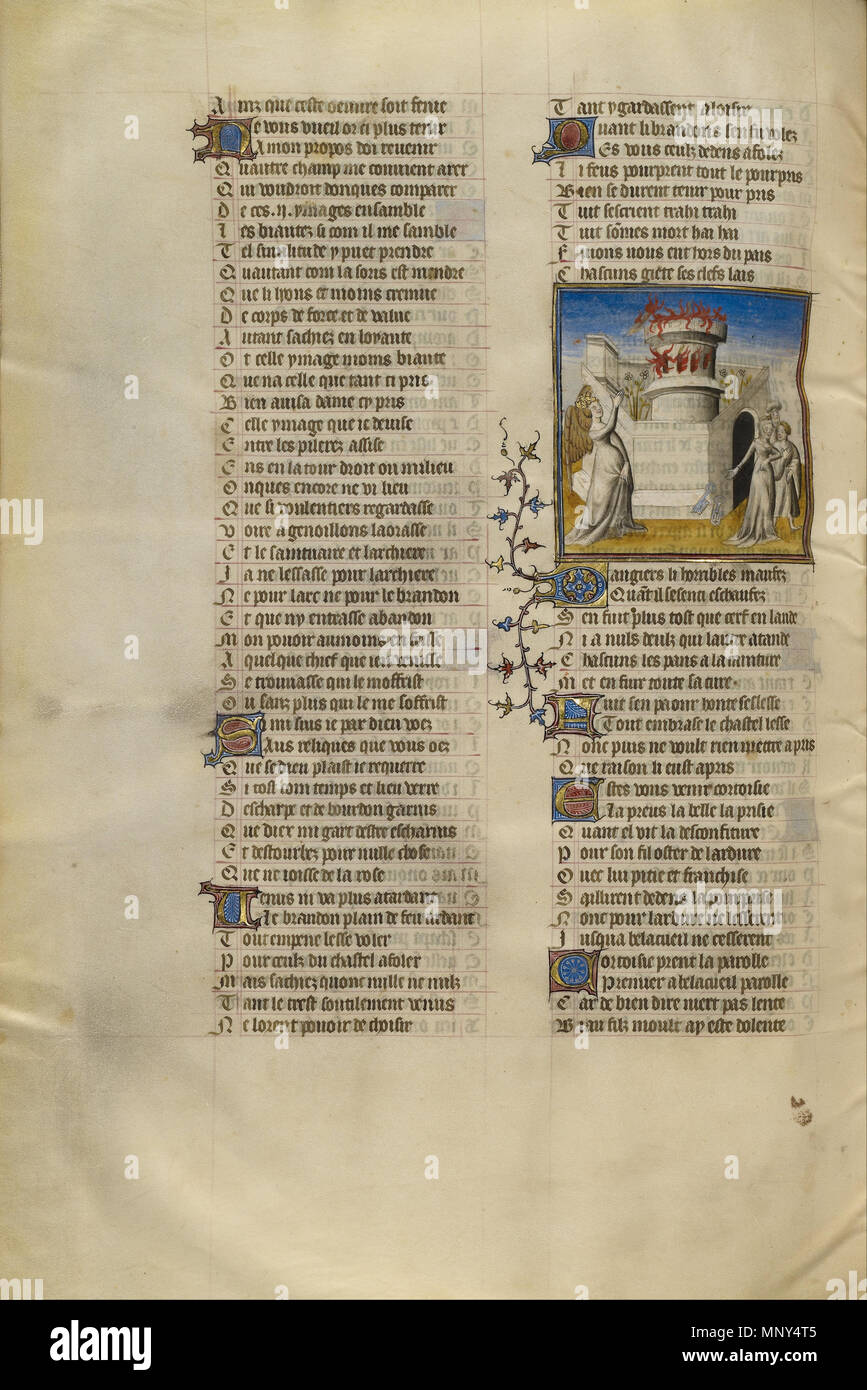 Ainz que ceste oeuure soit fenie
Ne vous vueil or ci plus tenir
A mon propos doi reuenir
Quautre champ me conuient arer
Qui voudroit donques comparer
De ces .ii. ymages ensamble
Les biautez si com il me samble
Tel similitude y puet prendre
Quautant com la soris est mendre
Que li lyons et moins cremue
De corps de force et de value
Autant sachiez en loyaute
Ot celle ymage moins biaute
Que na celle que tant ci pris
Bien auisa dame cypris
Celle ymage que ie deuise
Entre les pilerez assise
Ens en la tour droit ou milieu
Onques encore ne vi lieu
Que si voulentiers regardasse
Voire a genoillons laorasse
Et le saintuaire et larchiere
Ia ne lessasse pour larchiere
Ne pour larc ne pour le brandon
Et que ny entrasse abandon
Mon pouoir au moins en
A quelque chief que ien venisse
Se trouuasse qui le moffrist
Ou sanz plus qui le me souffrist
Si mi suis ie par dieu voez
Aus reliques que vous oez
Que se dieu plaist ie requerre
Si tost com temps et lieu verre
Descharpe et de bourdon garnis
Que dieu mi gart destre escharnis
Et destourbez pour nulle chose
Que ne ioisse de la rose
Uenus ni va plus atardant
Le brandon plain de feu ardant
Tout empene lesse voler
Pour ceulz du chastel afoler
Mais sachiez quonc nulle ne nulz
Tant le trest soutilement venus
Ne lorent pouoir de choisir
Tant y gardassent a loisir
Quant li brandons sen fu volez
Es vous ceulz dedens afolez
Li feus pourprent tout le pourpris
Bien se durent tenir pour pris
Tuit sescrient trahi trahi
Tuit sommes mort hai hai
Fuions nous ent hors du pais
Chascuns giete ses clefs lais
Dangiers li horribles maufez
Quant il se senti eschaufez
Sen fuit plus tost que cerf en lande
Ni a nuls deulz qui lautre atande
Chascuns les pans a la ceinture
Met en fuir toute sa cure
Fuit sen paour honte seslesse
Tout embrase le chastel lesse
Nonc puis ne voult rien mettre a pris
Que raison li eust apris
Estes vous venir cortoisie
La preus la belle la prisie
Quant el vit la desconfiture
Pour son fil oster de lardure
Ouec lui pitie et franchise
Saillirent dedens la pourprise
Nonc pour lardure ne lessierent
Iusqua belacueil ne cesserent
Cortoisie prent la parolle
Premier a belacueil parolle
Car de bien dire niert pas lente
Biau filz moult ay este dolente
alamy
Image ID: MNY4T5
www.alamy.com